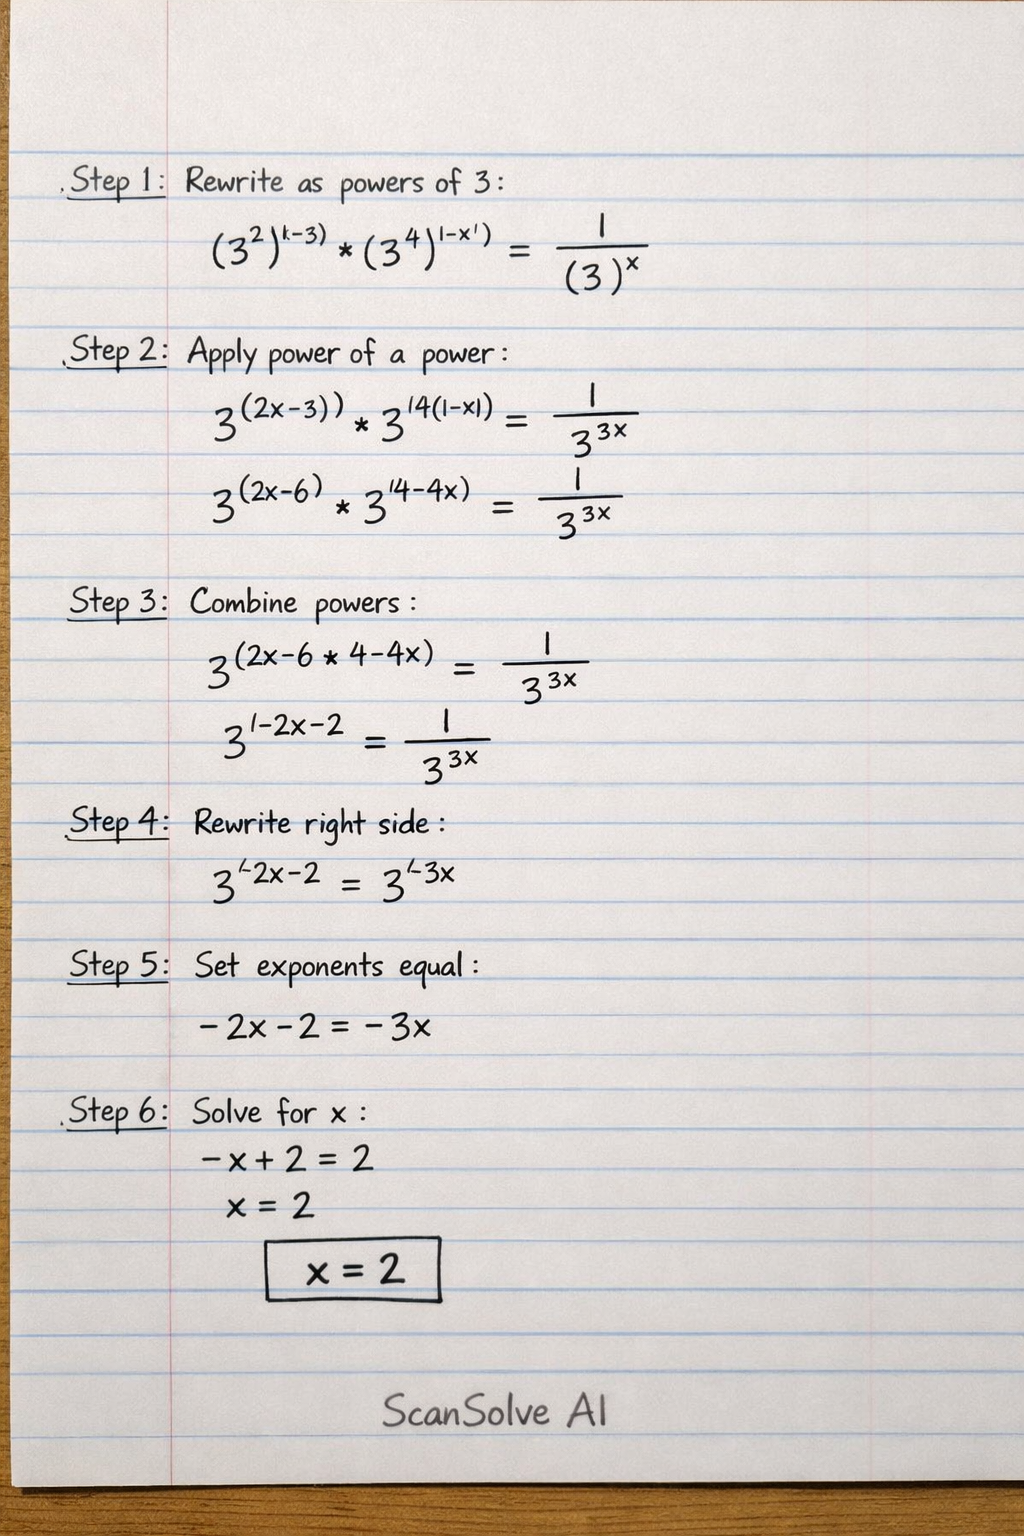 Step 1: Rewrite as powers of 3:
(3²)^(x-3) * (3⁴)^(1-x') = 1/(3)^x
Step 2: Apply power of a power:
3^(2x-3)) * 3^'4(1-x1) = 1/3^3x
3^(2x-6) * 3^'4-4x) = 1/3^3x
Step 3: Combine powers:
3^(2x-6 * 4-4x) = 1/3^3x
3^'-2x-2 = 1/3^3x
Step 4: Rewrite right side:
3^'-2x-2 = 3^'-3x
Step 5: Set exponents equal:
-2x-2 = -3x
Step 6: Solve for x:
-x+2 = 2
x = 2
x = 2
ScanSolve AI